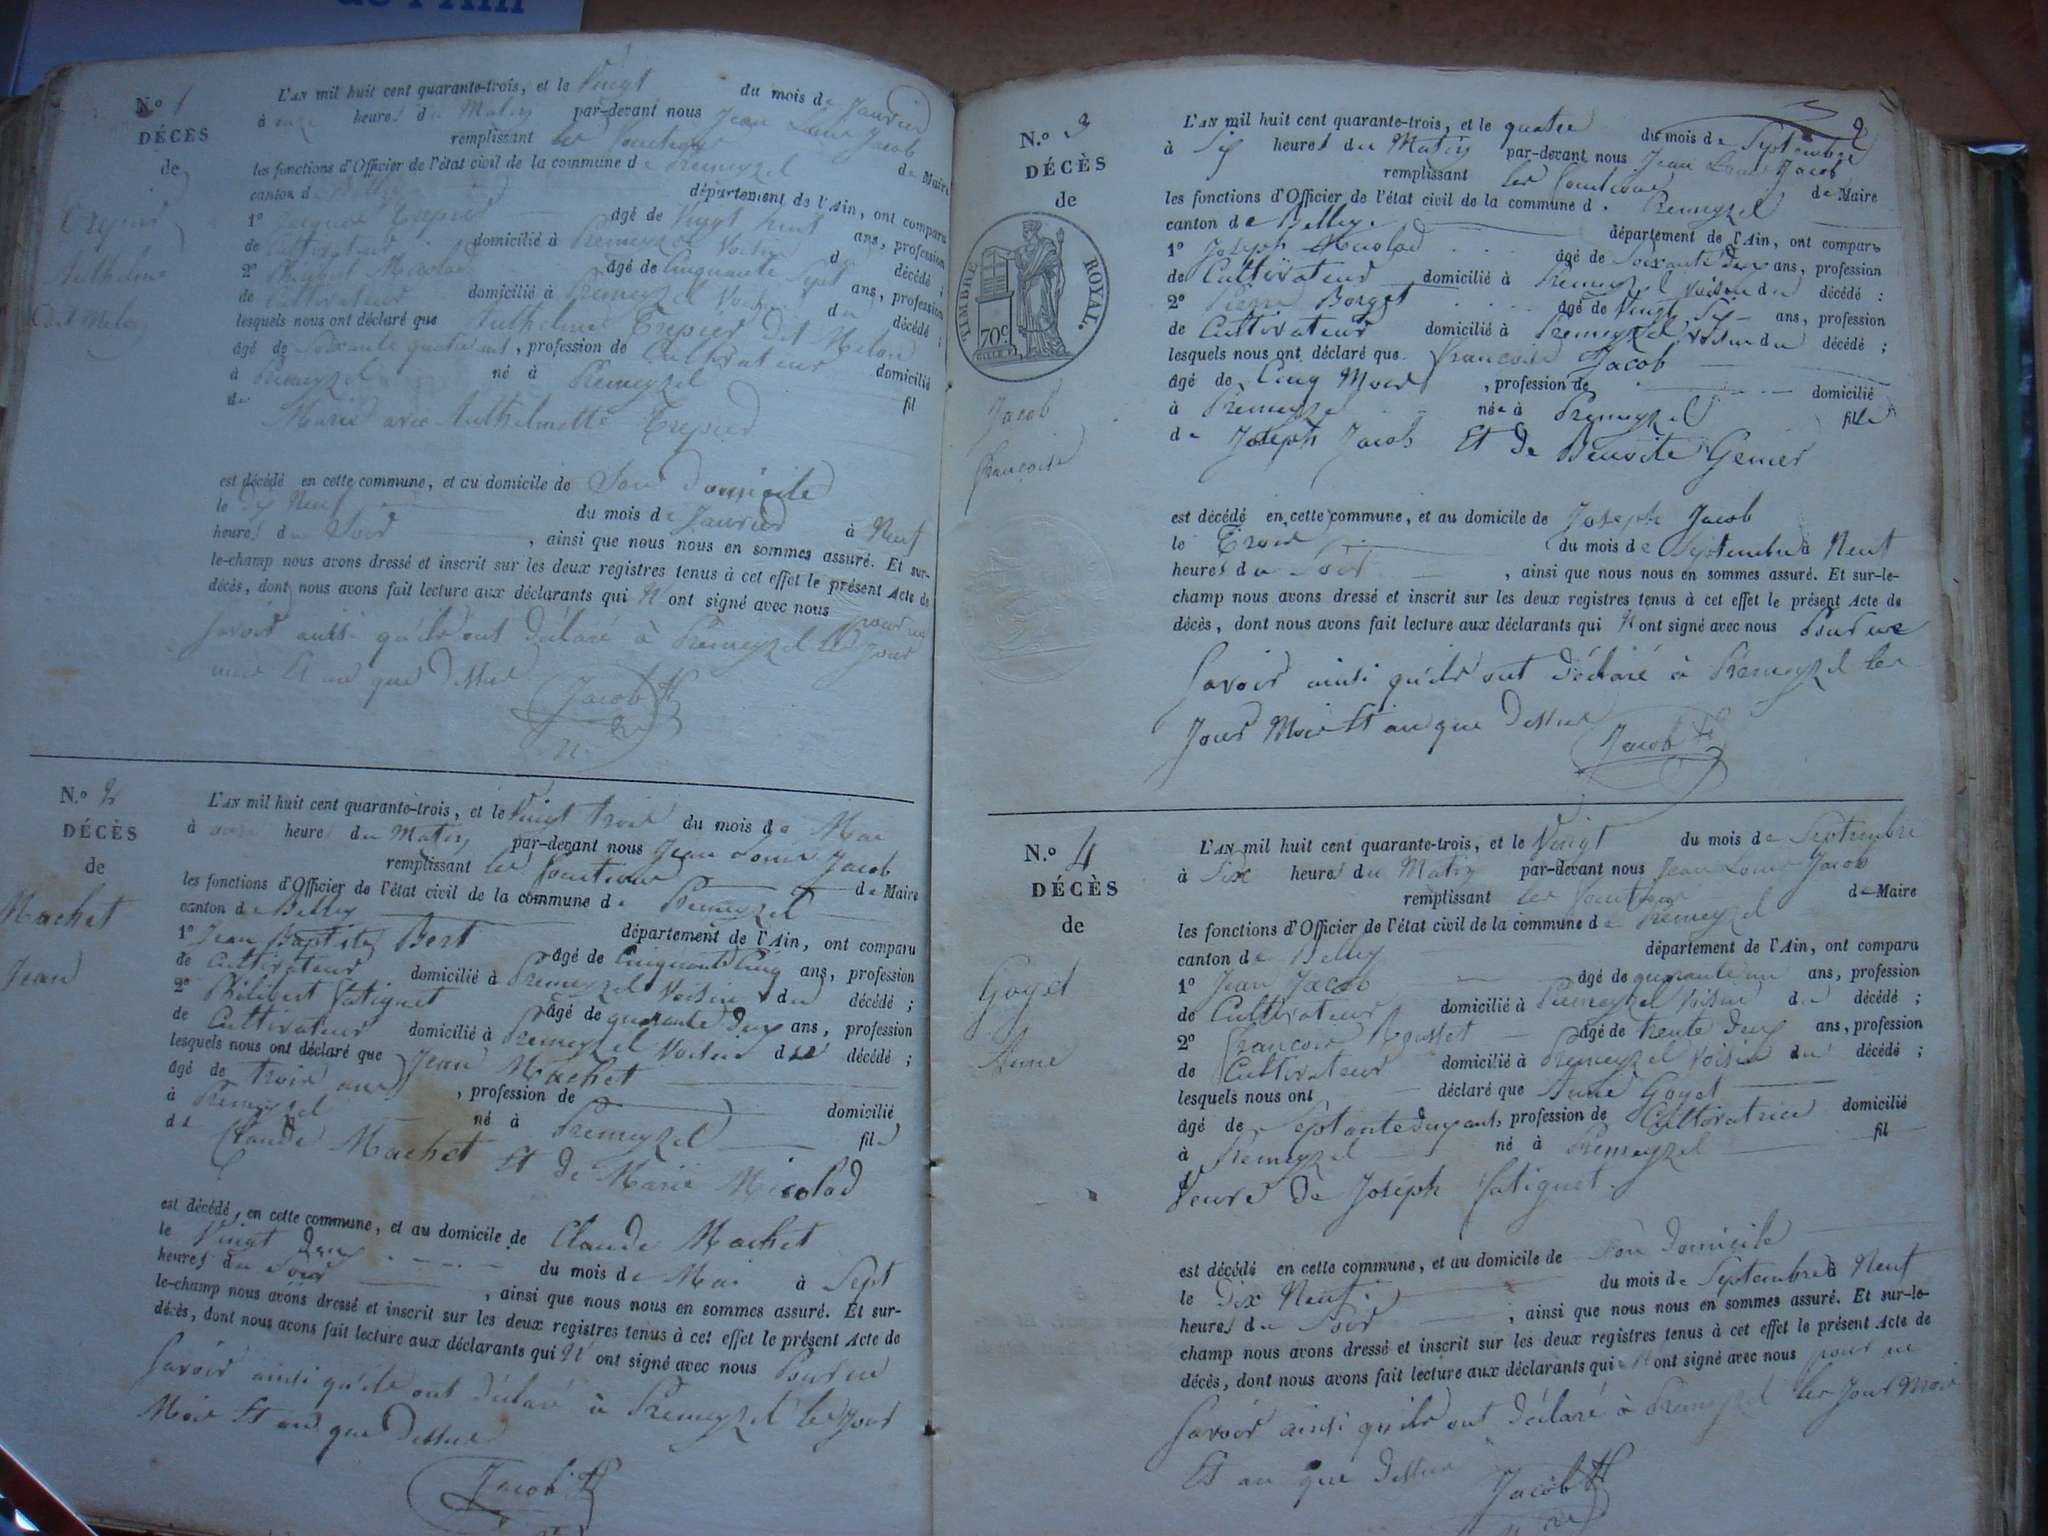 de l'Ain
N.º 1
DÉCÈS
de
Trepier
Anthelme
dit Melon
L'AN mil huit cent quarante-trois, et le Vingt du mois de Janvier
à onze heures du Matin par-devant nous Jean Louis Jacob
remplissant les fonctions de Maire
les fonctions d'Officier de l'état civil de la commune de Premeyzel
canton de département de l'Ain, ont comparu
1º Jacques Trepier âgé de Vingt huit ans, profession
de Cultivateur domicilié à Premeyzel Voisin du décédé ;
2º Nicolas âgé de Cinquante Sept ans, profession
de Cultivateur domicilié à Premeyzel Voisin du décédé ;
lesquels nous ont déclaré que Anthelme Trepier dit Melon
âgé de Soixante quatre ans, profession de Cultivateur domicilié
à Premeyzel né à Premeyzel fil
de Marié avec Anthelmette Trepier
est décédé en cette commune, et au domicile de Son domicile
le Dix Neuf du mois de Janvier à Neuf
heures du Soir, ainsi que nous nous en sommes assuré. Et sur-
le-champ nous avons dressé et inscrit sur les deux registres tenus à cet effet le présent Acte de
décès, dont nous avons fait lecture aux déclarants qui N'ont signé avec nous pour ne
Savoir ainsi qu'ils ont déclaré à Premeyzel les Jour
mois Et an que dessus
Jacob
N.º 2
DÉCÈS
de
Machet
Jean
L'AN mil huit cent quarante-trois, et le Vingt trois du mois de Mai
à onze heures du Matin par-devant nous Jean Louis Jacob
remplissant les fonctions de Maire
les fonctions d'Officier de l'état civil de la commune de Premeyzel
canton de Belley département de l'Ain, ont comparu
1º Jean Baptiste Bert âgé de Cinquante Cinq ans, profession
de Cultivateur domicilié à Premeyzel Voisin du décédé ;
2º Philibert Fatiguet âgé de quarante deux ans, profession
de Cultivateur domicilié à Premeyzel Voisin du décédé ;
lesquels nous ont déclaré que Jean Machet
âgé de trois ans, profession de domicilié
à Premeyzel né à Premeyzel fils
de Claude Machet Et de Marie Nicolad
est décédé, en cette commune, et au domicile de Claude Machet
le Vingt deux du mois de Mai à Sept
heures du Soir, ainsi que nous nous en sommes assuré. Et sur-
le-champ nous avons dressé et inscrit sur les deux registres tenus à cet effet le présent Acte de
décès, dont nous avons fait lecture aux déclarants qui N'ont signé avec nous Pour ne
Savoir ainsi qu'ils ont déclaré à Premeyzel les Jour
Mois Et an que Dessus
Jacob
2
N.º 3
DÉCÈS
de
TIMBRE ROYAL.
70c.
Jacob
Françoise
L'AN mil huit cent quarante-trois, et le quatre du mois de Septembre
à Six heures du Matin par-devant nous Jean Louis Jacob
remplissant les fonctions de Maire
les fonctions d'Officier de l'état civil de la commune d. Premeyzel
canton de Belley. département de l'Ain, ont comparu
1º Joseph Nicolad âgé de Soixante deux ans, profession
de Cultivateur domicilié à Premeyzel Voisin du décédé ;
2º Pierre Borget âgé de Vingt Six ans, profession
de Cultivateur domicilié à Premeyzel voisin du décédé ;
lesquels nous ont déclaré que Françoise Jacob
âgé de Cinq Mois, profession de domicilié
à Premeyzel née à Premeyzel fille
de Joseph Jacob Et de Benoite Genier
est décédé en cette commune, et au domicile de Joseph Jacob
le Trois du mois de Septembre à Neuf
heures du Soir, ainsi que nous nous en sommes assuré. Et sur-le-
champ nous avons dressé et inscrit sur les deux registres tenus à cet effet le présent Acte de
décès, dont nous avons fait lecture aux déclarants qui N'ont signé avec nous Pour ne
Savoir ainsi qu'ils ont déclaré à Premeyzel les
Jour Mois Et an que Dessus
Jacob
N.º 4
DÉCÈS
de
Goyet
Anne
L'AN mil huit cent quarante-trois, et le Vingt du mois de Septembre
à Six heures du Matin par-devant nous Jean Louis Jacob
remplissant les fonctions de Maire
les fonctions d'Officier de l'état civil de la commune de Premeyzel
canton de Belley département de l'Ain, ont comparu
1º Jean Jacob âgé de quarante un ans, profession
de Cultivateur domicilié à Premeyzel Voisin du décédé ;
2º François Rousset âgé de trente deux ans, profession
de Cultivateur domicilié à Premeyzel Voisin du décédé ;
lesquels nous ont déclaré que Anne Goyet
âgé de Septante deux ans, profession de Cultivatrice domicilié
à Premeyzel né à Premeyzel fil
Veuve de Joseph Fatiguet.
est décédé en cette commune, et au domicile de Son Domicile
le Dix Neuf. du mois de Septembre à Neuf
heures du Soir ; ainsi que nous nous en sommes assuré. Et sur-le-
champ nous avons dressé et inscrit sur les deux registres tenus à cet effet le présent Acte de
décès, dont nous avons fait lecture aux déclarants qui N'ont signé avec nous pour ne
Savoir ainsi qu'ils ont déclaré à Premeyzel les Jour Mois
Et an que dessus
Jacob